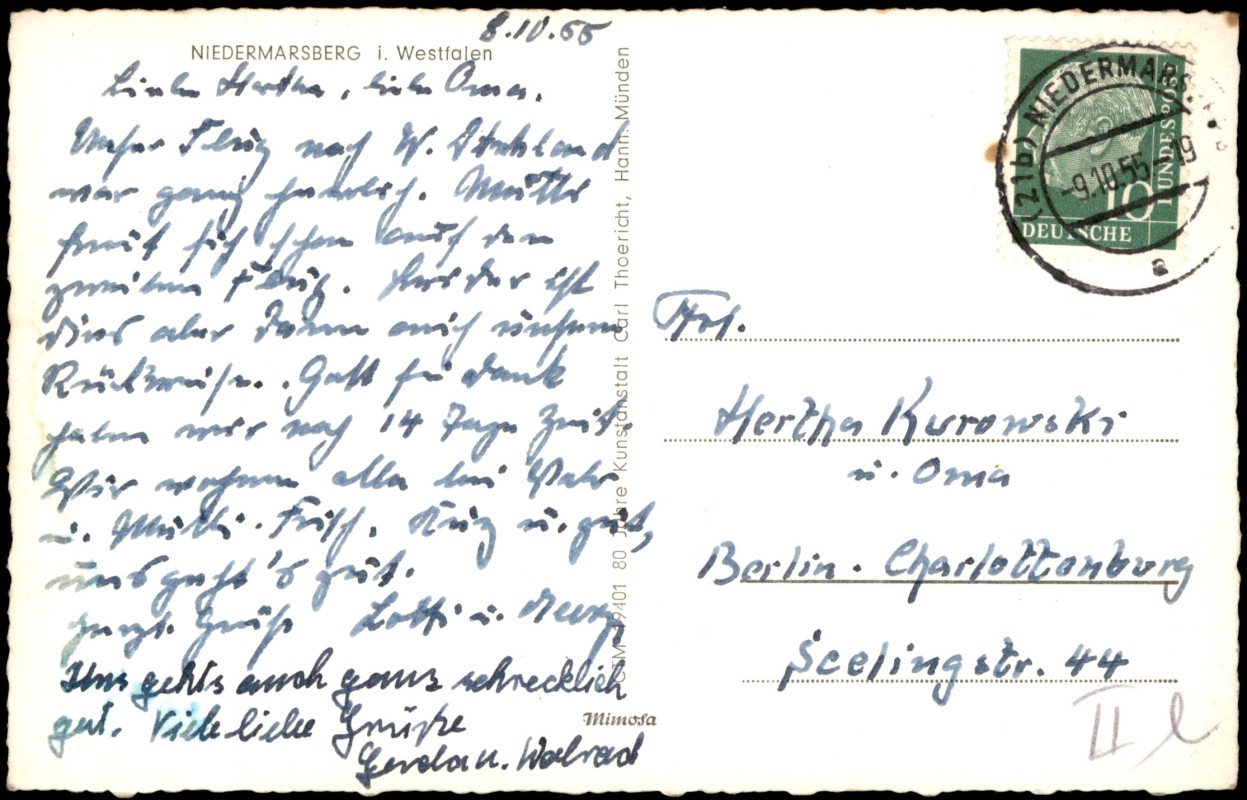 8.10.55
NIEDERMARSBERG i. Westfalen
Liebe Hertha, liebe Oma.
Unser Flug nach W. Deutschland
war ganz herrlich. Mutti
freut sich schon auf den
zweiten Flug. Leider ist
dies aber dann auch unsere
Rückreise. Gott sei dank
haben wir noch 14 Tage Zeit.
Wir wohnen alle bei
u. Mutti. Kurz u. gut,
uns geht's gut.
Herzl. Grüße Lotti u.
Uns gehts auch ganz schrecklich
gut. Viele liebe Grüße
Gerda u. Walrad
CTM 19401 80 Jahre Kunstanstalt Carl Thoericht, Hann. Münden
Mimosa
(21b) NIEDERMARS
-9.10.55-19
a
10
DEUTSCHE
BUNDESPOST
Frl.
Hertha Kurowski
u. Oma
Berlin. Charlottenburg
Seelingstr. 44
II